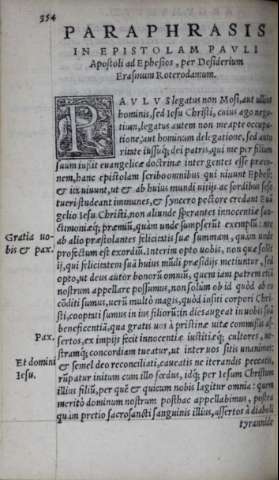 354
PARAPHRASIS
IN EPISTOLAM PAVLI
Apostoli ad Ephesios, per Desiderium
Erasmum Roterodamum.
PAVLVS legatus non Mosi, aut ullius
hominis, sed Iesu Christi, cuius ago nego-
tium, legatus autem non meapte occupa-
tione, aut hominum delegatione, sed auto
ritate iussuq; dei patris, qui me per filium
suum iussit euangelicæ doctrinæ inter gentes esse præco-
nem, hanc epistolam scribo omnibus qui uiuunt Ephesi:
& ix uiuunt, ut & ab huius mundi uitijs ac sordibus sese
tueri studeant immunes, & syncero pectore credant Euan
gelio Iesu Christi, non aliunde sperantes innocentiæ san-
ctimoniæq; præmiū, quàm unde sumpserūt exemplū: nec
ab alio præstolantes felicitatis suæ summam, quàm unde
Gratia uo-
bis & pax.
profectum est exordiū. Interim opto uobis, non quæ solēt
ij, qui felicitatem suā huius mūdi præsidijs metiuntur, sed
opto, ut deus autor bonorū omniū, quem iam patrem etiā
nostrum appellare possumus, non solùm ob id quòd ab eo
cōditi sumus, uerū multò magis, quòd insiti corpori Chri-
sti, cooptati sumus in ius filiorū: in dies augeat in uobis suā
beneficentiā, qua gratis uos à pristinæ uitæ commissis as-
Pax.
sertos, ex impijs fecit innocentiæ iustitiæq; cultores, no-
stramq; concordiam tueatur, ut inter uos sitis unanimes:
Et domini
Iesu.
& semel deo reconciliati, caueatis ne iterandis peccatis,
rūpatur initum cum illo fœdus, idq; per Iesum Christum
illius filiū, per quē & quicum nobis lagitur omnia: quem
meritò dominum nostrum posthac appellabimus, postea
quàm pretio sacrosancti sanguinis illius, assertos à diaboli
tyrannide